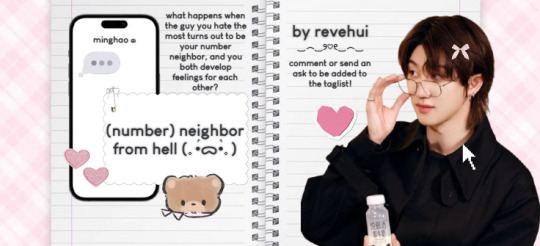 minghao
what happens when
the guy you hate the
most turns out to be
your number
neighbor, and you
both develop
feelings for each
other?
(number) neighbor
from hell (
by revehui
comment or send an
ask to be added to
the taglist!